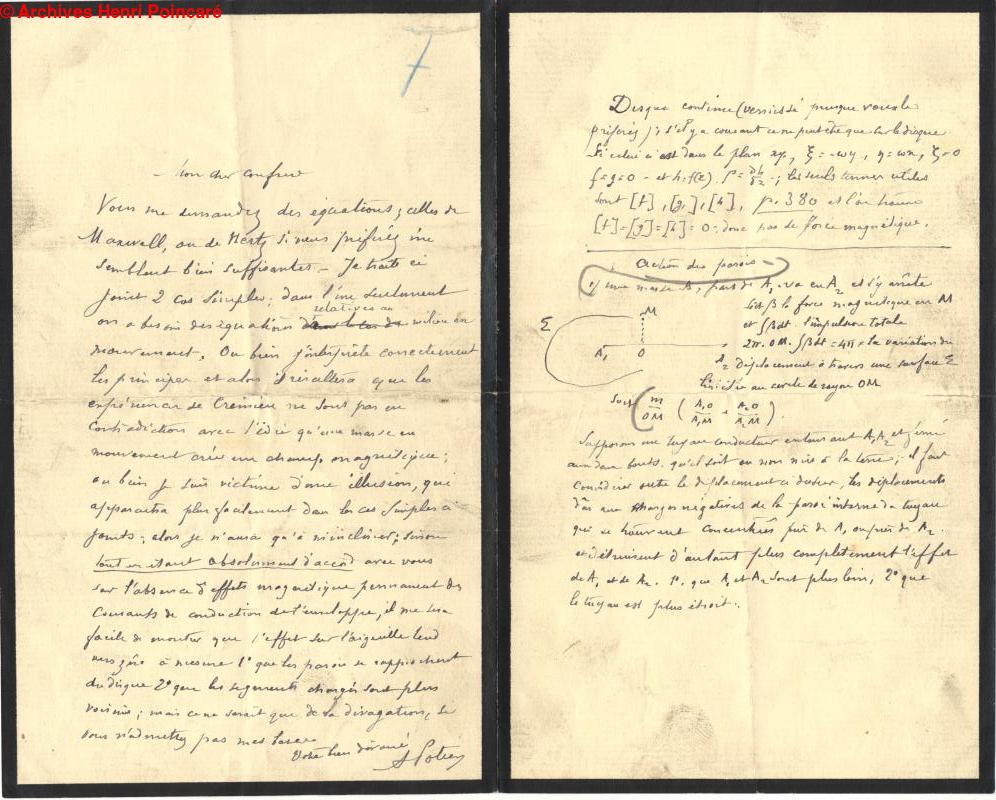 © Archives Henri Poincaré
7
Mon cher confrère
Vous me demandez des équations ; celles de
Maxwell, ou de Hertz si vous préférez me
semblent bien suffisantes – Je traite ci
joint 2 cas simples ; dans l'un seulement
on a besoin des équations relatives au milieu en
mouvement. Ou bien j'interprète correctement
les principes et alors il résultera que les
expériences de Crémieu ne sont pas en
contradiction avec l'idée qu'une masse en
mouvement crée un champ magnétique ;
ou bien je suis victime d'une illusion, qui
apparaitra plus facilement dans les cas simples ci
joints ; alors je n'aurai qu'à m'incliner ; sinon
tout en étant absolument d'accord avec vous
sur l'absence d'effets magnétique permanent des
courants de conduction de l'enveloppe, il me sera
facile de montrer que l'effet sur l'aiguille tend
vers zéro à mesure 1° que les parois se rapprochent
du disque 2° que les segments chargés sont plus
voisins ; mais ce ne serait que de la divagation, si
vous n'admettez pas mes bases
Votre bien dévoué
A Potier
Disque continu (vernissé puisque vous le
préférez) ; s'il y a courant ce ne peut être que sur le disque.
Si celui ci est dans le plan xy, ξ = -ωy, η = ωx, ζ = 0
f = g = 0 – et h = f(z). ρ = dh/dz – ; les seuls termes utiles
sont [f], [g], [h], p. 380 et l'on trouve
[f] = [g] = [h] = 0 – donc pas de force magnétique.
Action des parois –
Si une masse m, part de A₁ – va en A₂ et s'y arrête
soit β la force magnétique en M
et ∫βdt l'impulsion totale
2π. OM. ∫βdt = 4π × la variation du
déplacement à travers une surface Σ
limitée au cercle de rayon OM
Σ
M
A₁ O A₂
soit m/OM (A₁O/A₁M + A₂O/A₂M).
Supposons un tuyau conducteur entourant A₁A₂ et fermé
aux deux bouts, qu'il soit ou non mis à la terre ; il faut
considérer outre le déplacement ci dessus, les déplacements
dûs aux charges négatives de la paroi interne du tuyau
qui se trouvent concentrées près de A₁ ou près de A₂
et détruisent d'autant plus complètement l'effet
de A₁ et de A₂. 1°, que A₁ et A₂ sont plus loin, 2° que
le tuyau est plus étroit.